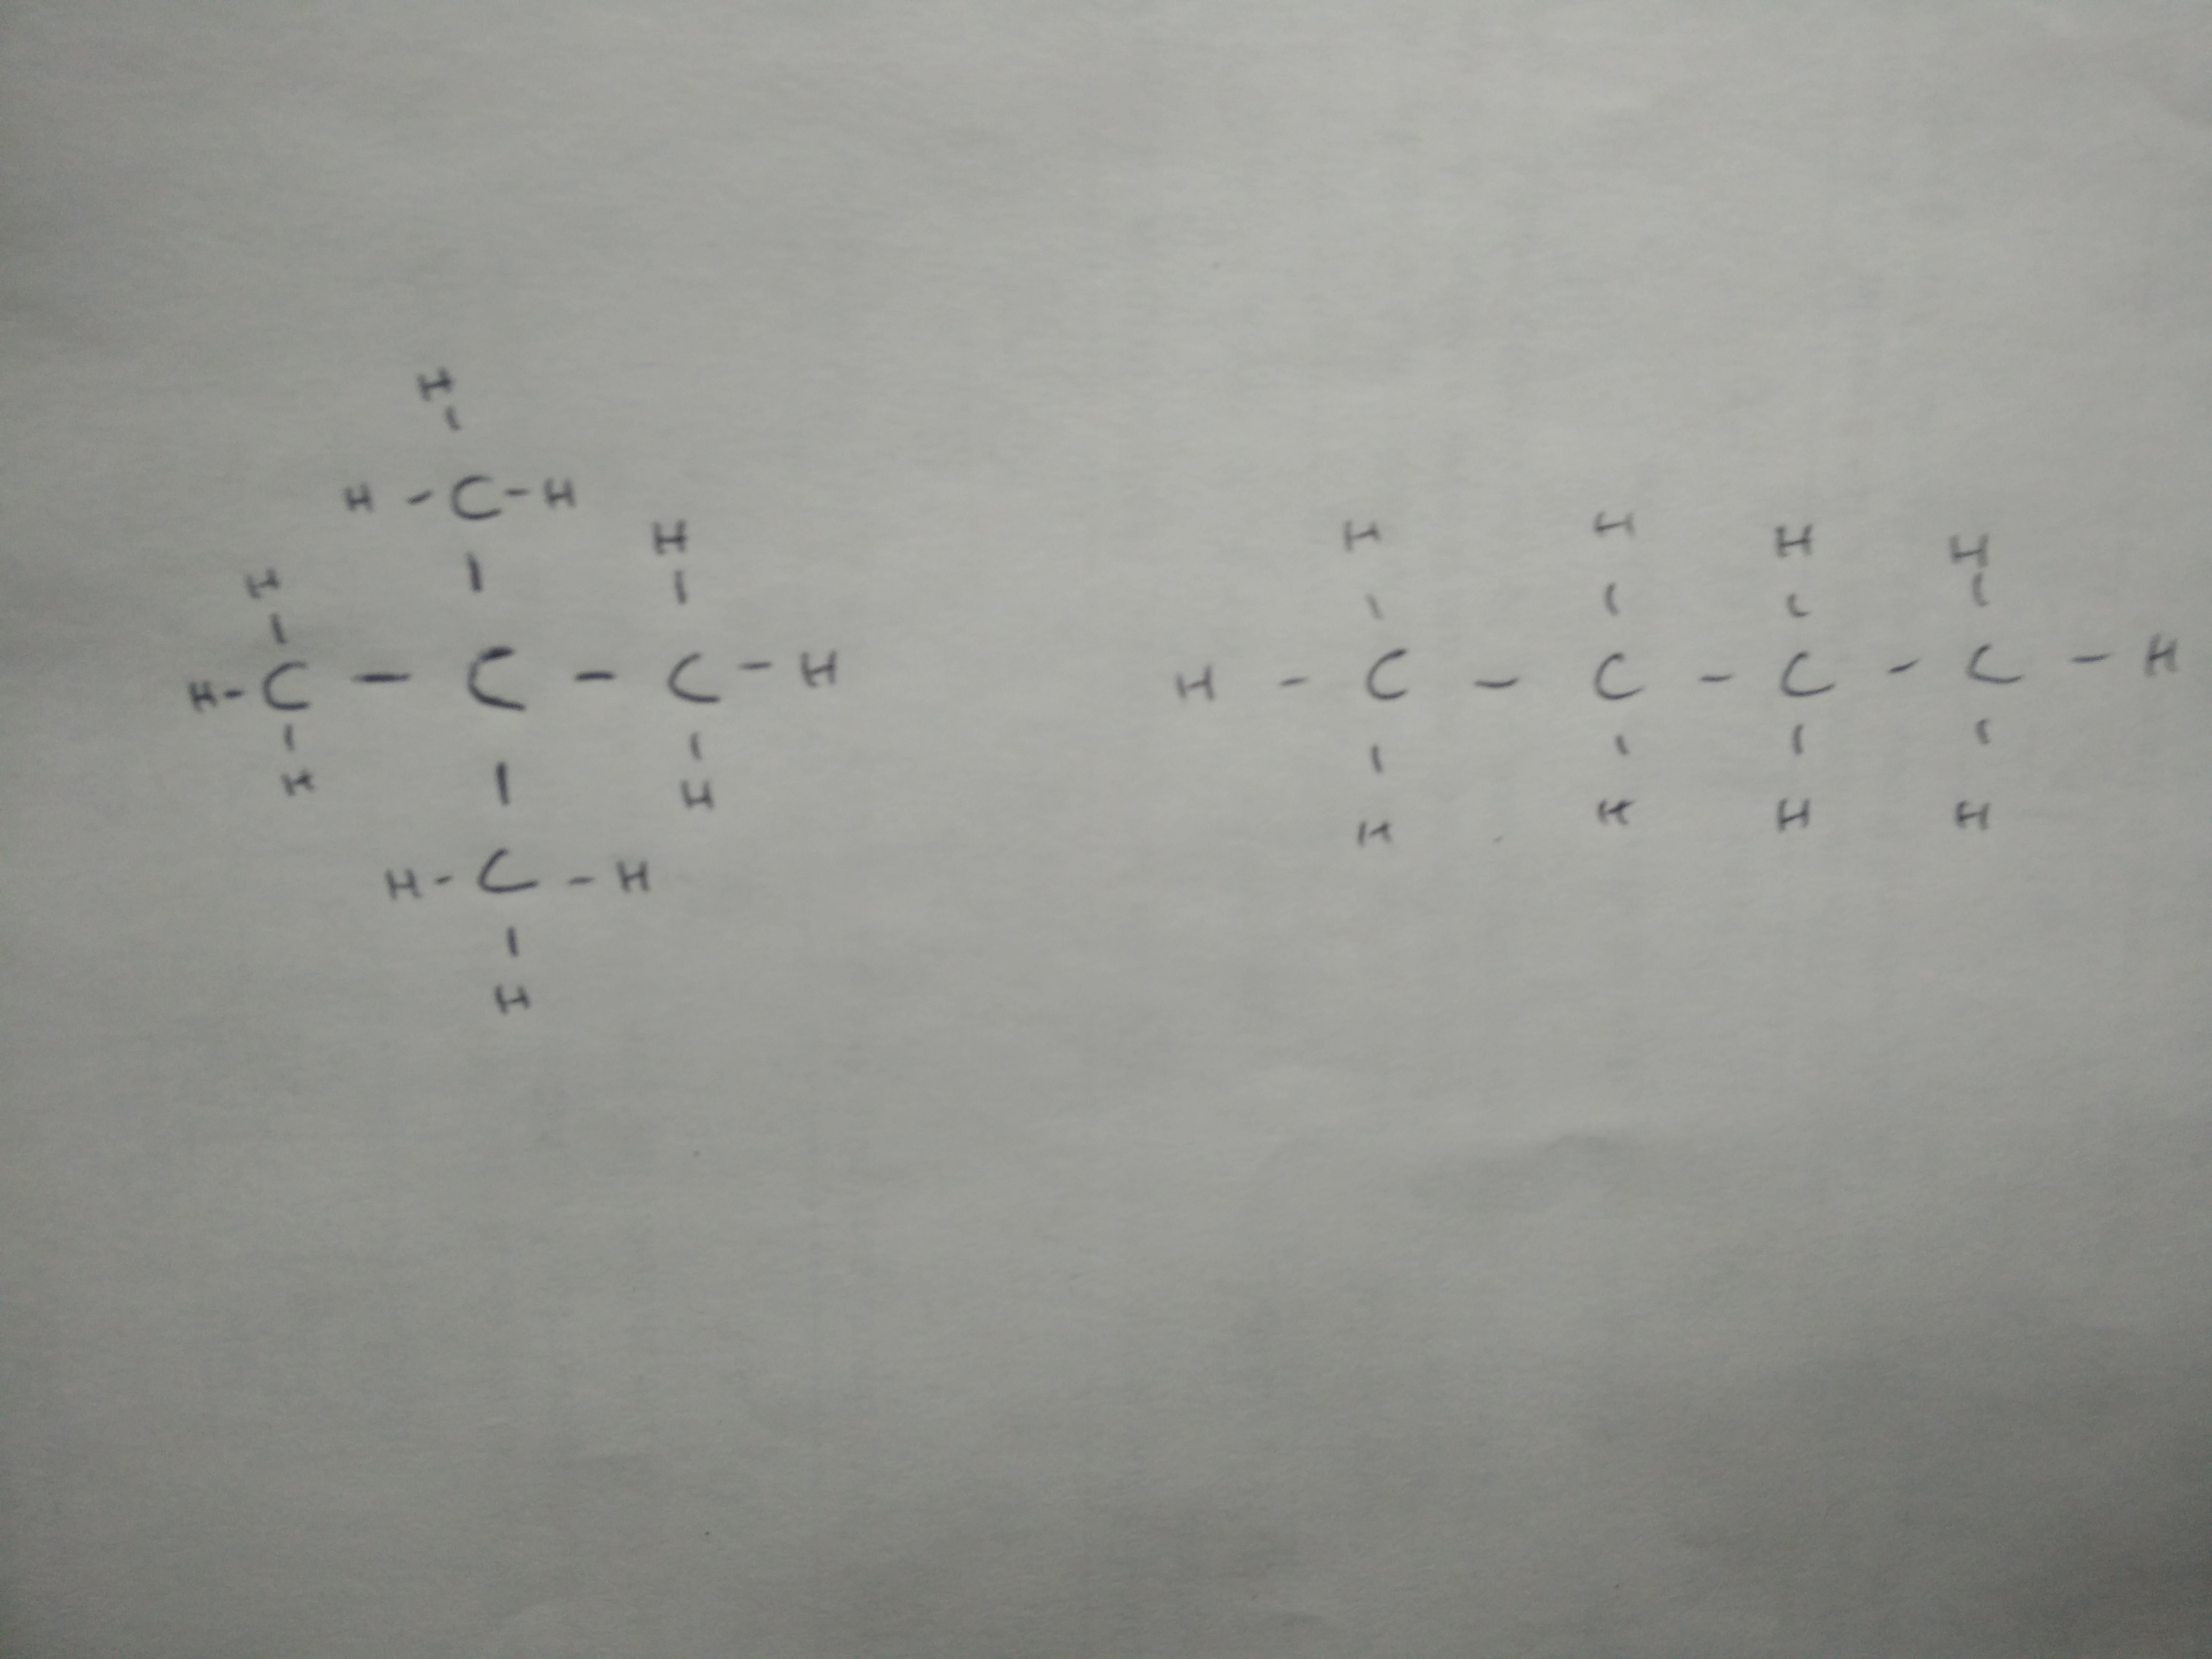 H
H - C - H
H H
H - C - C - C - H
H H
H - C - H
H
H H H H
H - C - C - C - C - H
H H H H